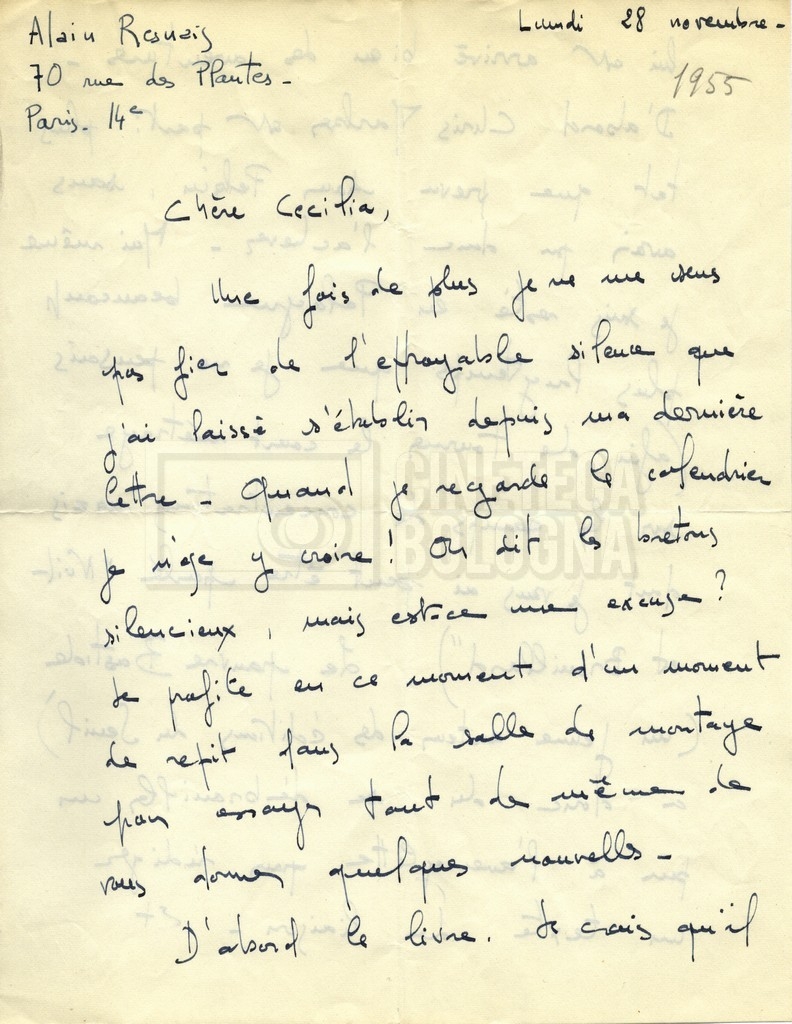 Alain Resnais
Lundi 28 novembre -
70 rue des Plantes -
1955
Paris. 14e
Chère Cecilia,
Une fois de plus je ne me sens
pas fier de l'effroyable silence que
j'ai laissé s'établir depuis ma dernière
lettre - Quand je regarde le calendrier
je n'ose y croire ! On dit les bretons
silencieux, mais est-ce une excuse ?
Je profite en ce moment d'un moment
de repit dans la salle de montage
pour essayer tout de même de
vous donner quelques nouvelles -
D'abord le livre. Je crois qu'il
CINETECA
BOLOGNA